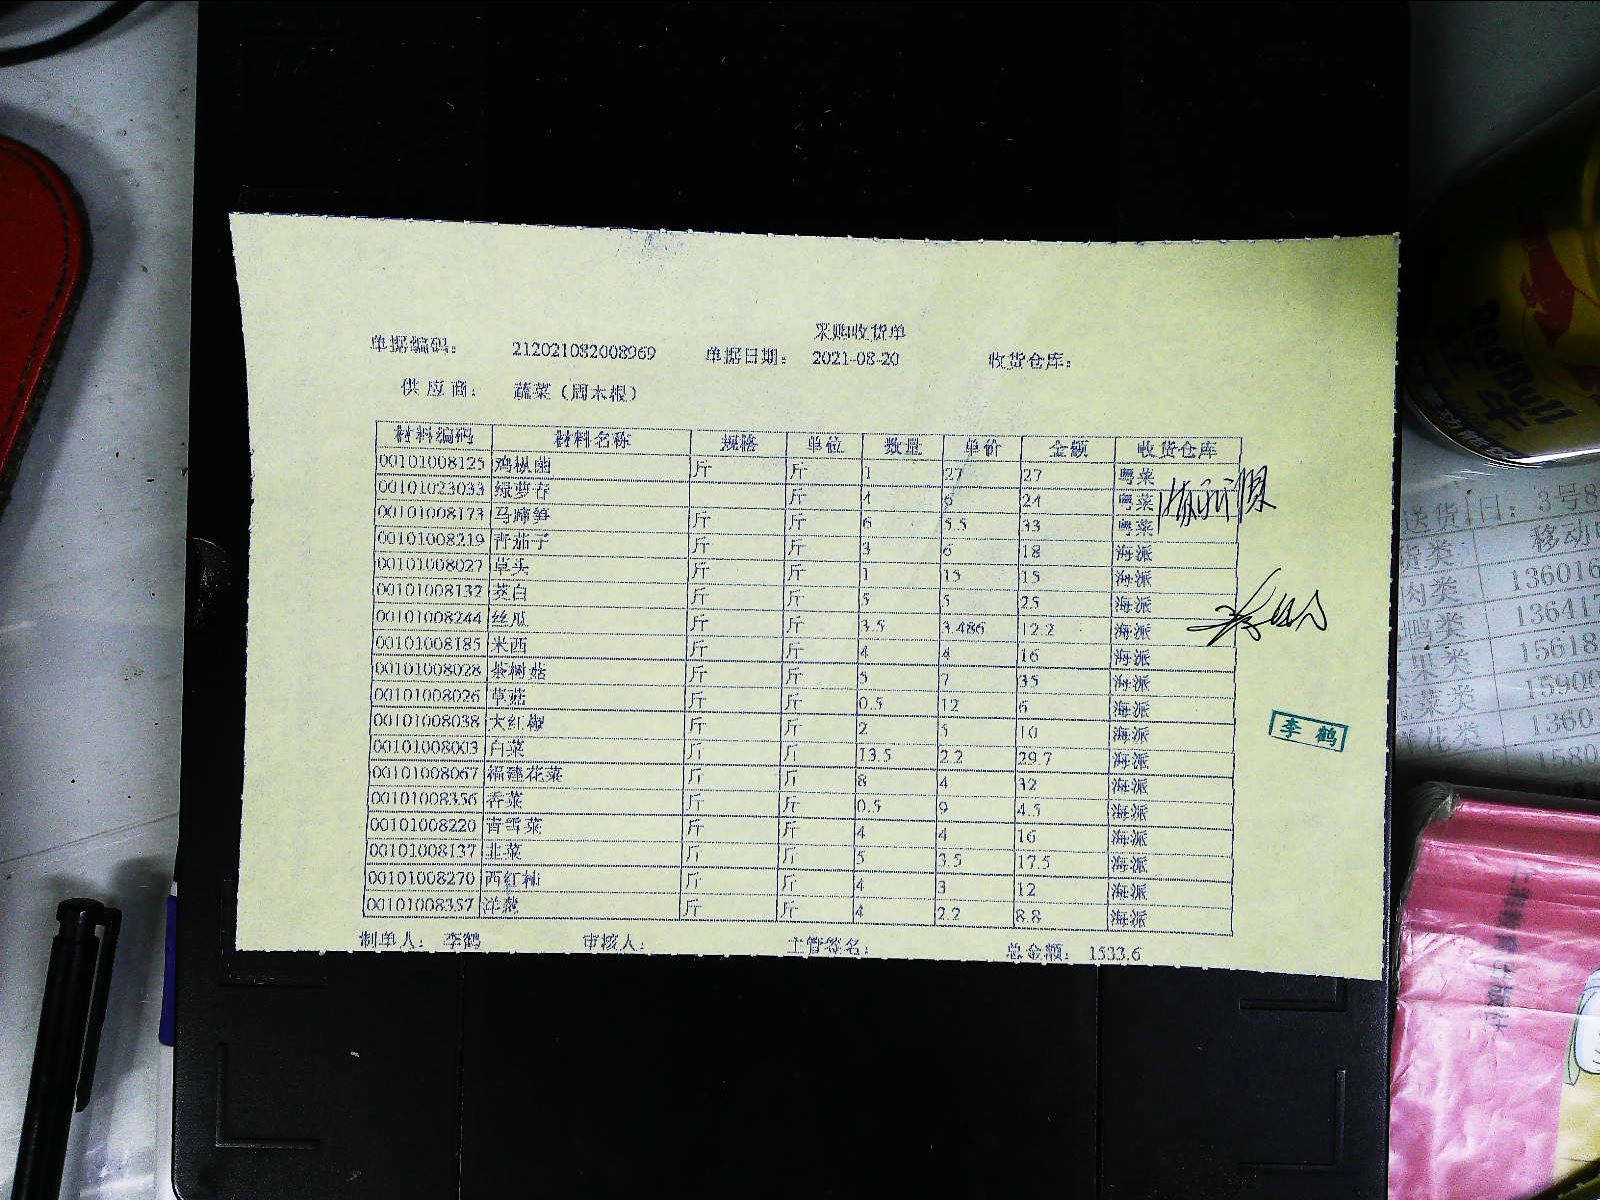 采购收货单
单据编码： 212021082008969 单据日期： 2021-08-20 收货仓库：
供应商： 蔬菜（周木根）
材料编码 材料名称 规格 单位 数量 单价 金额 收货仓库
00101008125 鸡枞菌 斤 斤 1 27 27 粤菜
00101023033 绿萝春 斤 4 6 24 粤菜
00101008173 马蹄笋 斤 斤 6 5.5 33 粤菜
00101008219 青茄子 斤 斤 3 6 18 海派
00101008027 草头 斤 斤 1 15 15 海派
00101008132 茭白 斤 斤 5 5 25 海派
00101008244 丝瓜 斤 斤 3.5 3.486 12.2 海派
00101008185 米西 斤 斤 4 4 16 海派
00101008028 茶树菇 斤 斤 5 7 35 海派
00101008026 草菇 斤 斤 0.5 12 6 海派
00101008038 大红椒 斤 斤 2 5 10 海派
00101008003 白菜 斤 斤 13.5 2.2 29.7 海派
00101008067 福建花菜 斤 斤 8 4 32 海派
00101008356 香菜 斤 斤 0.5 9 4.5 海派
00101008220 青雪菜 斤 斤 4 4 16 海派
00101008137 韭菜 斤 斤 5 3.5 17.5 海派
00101008270 西红柿 斤 斤 4 3 12 海派
00101008357 洋葱 斤 斤 4 2.2 8.8 海派
制单人： 李鹤 审核人： 主管签名： 总金额： 1533.6
李鹤
RedBull
送货 日：3号8
移动
肉类 136016
鸭类 13641
果类 15618
蔬菜类 15900
1360
1580